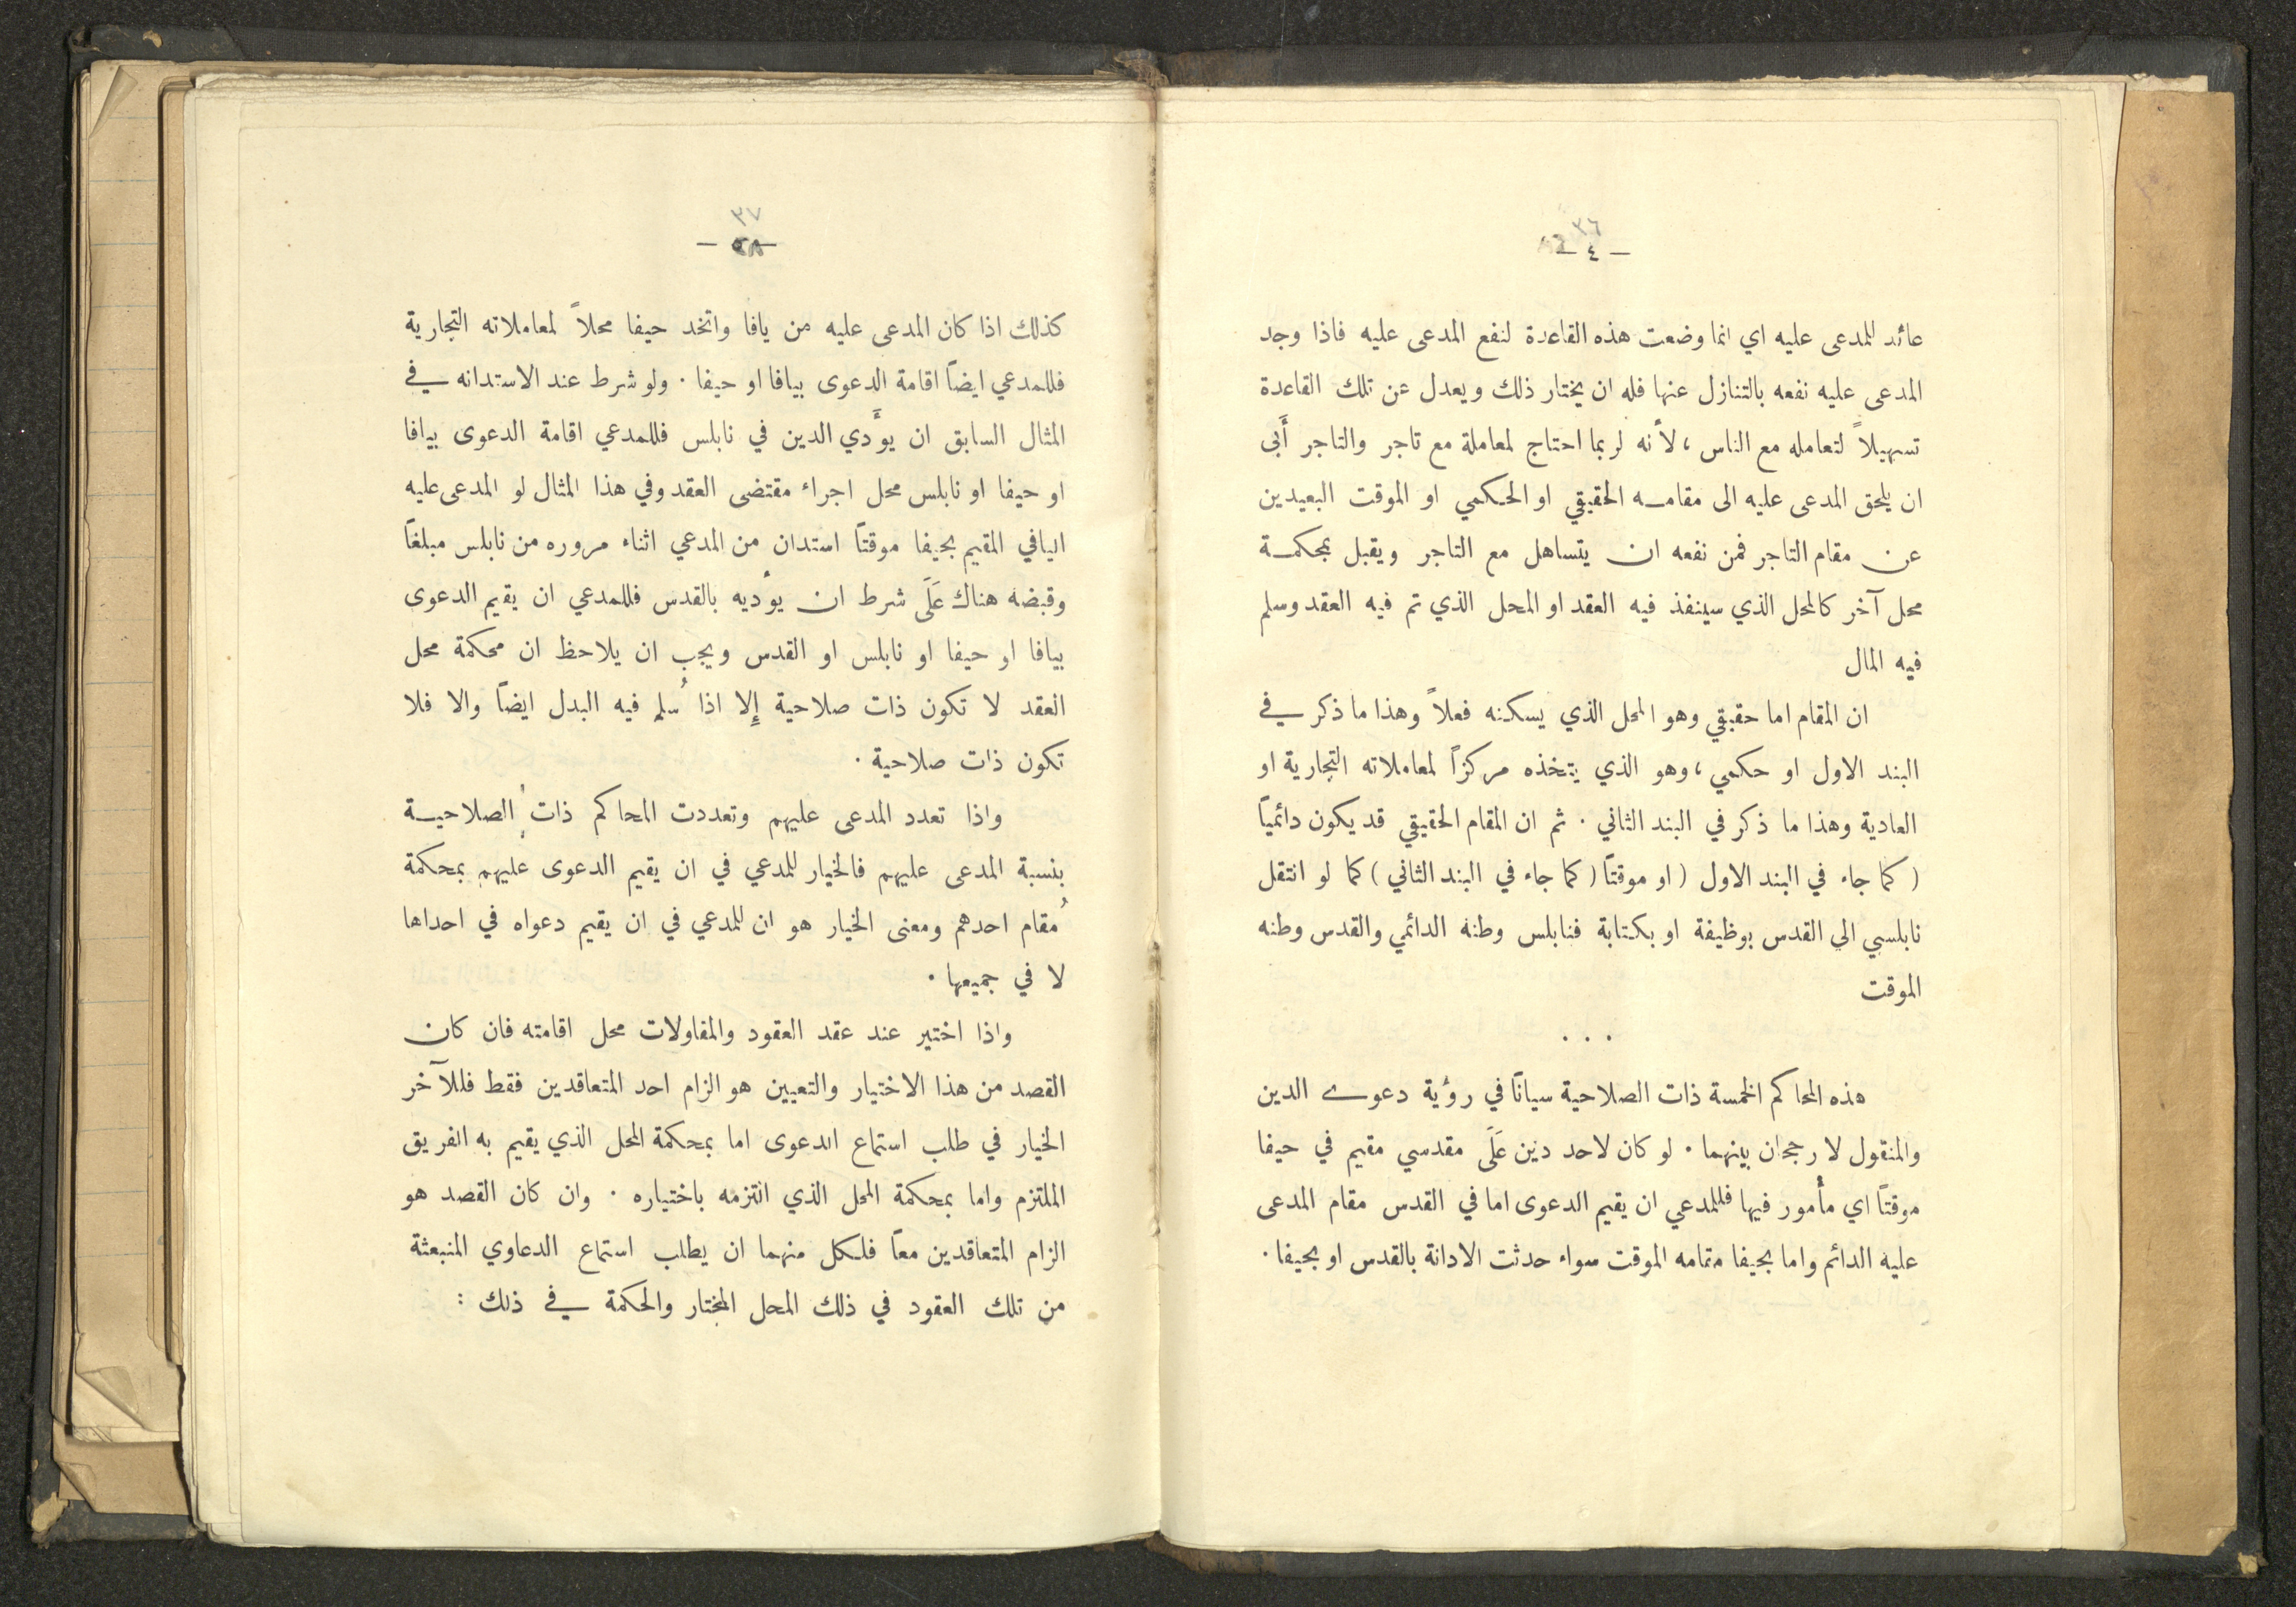 ٣٦
— ٤ —
عائد للمدعى عليه اي انما وضعت هذه القاعدة لنفع المدعى عليه فاذا وجد
المدعى عليه نفعه بالتنازل عنها فله ان يختار ذلك ويعدل عن تلك القاعدة
تسهيلاً لتعامله مع الناس، لأنه لربما احتاج لمعاملة مع تاجر والتاجر أَبى
ان يلحق المدعى عليه الى مقامه الحقيقي او الحكمي او الموقت البعيدين
عن مقام التاجر فمن نفعه ان يتساهل مع التاجر ويقبل بمحكمة
محل آخر كالمحل الذي سينفذ فيه العقد او المحل الذي تم فيه العقد وسلم
فيه المال
ان المقام اما حقيقي وهو المحل الذي يسكنه فعلاً وهذا ما ذكر في
البند الاول او حكمي، وهو الذي يتخذه مركزاً لمعاملاته التجارية او
العادية وهذا ما ذكر في البند الثاني . ثم ان المقام الحقيقي قد يكون دائمياً
( كما جاء في البند الاول ( او موقتاً ( كما جاء في البند الثاني ) كما لو انتقل
نابلسي الي القدس بوظيفة او بكتابة فنابلس وطنه الدائمي والقدس وطنه
الموقت
. . .
هذه المحاكم الخمسة ذات الصلاحية سياناً في رؤية دعوى الدين
والمنقول لا رجحان بينهما . لو كان لاحد دين عَلَى مقدسي مقيم في حيفا
موقتاً اي مأمور فيها فللمدعي ان يقيم الدعوى اما في القدس مقام المدعى
عليه الدائم واما بحيفا مقامه الموقت سواء حدثت الادانة بالقدس او بحيفا .
٣٧
كذلك اذا كان المدعى عليه من يافا واتخد حيفا محلاً لمعاملاته التجارية
فللمدعي ايضاً اقامة الدعوى بيافا او حيفا . ولو شرط عند الاستدانه في
المثال السابق ان يؤَدي الدين في نابلس فللمدعي اقامة الدعوى بيافا
او حيفا او نابلس محل اجراء مقتضى العقد وفي هذا المثال لو المدعى عليه
اليافي المقيم بحيفا موقتاً استدان من المدعي اثناء مروره من نابلس مبلغاً
وقبضه هناك عَلَى شرط ان يؤديه بالقدس فللمدعي ان يقيم الدعوى
بيافا او حيفا او نابلس او القدس ويجب ان يلاحظ ان محكمة محل
العقد لا تكون ذات صلاحية إِلا اذا سُلم فيه البدل ايضاً والا فلا
تكون ذات صلاحية .
واذا تعدد المدعى عليهم وتعددت المحاكم ذات الصلاحية
بنسبة المدعى عليهم فالخيار للمدعي في ان يقيم الدعوى عليهم بمحكمة
مُقام احدهم ومعنى الخيار هو ان للمدعي في ان يقيم دعواه في احداها
لا في جميعها .
واذا اختير عند عقد العقود والمقاولات محل اقامته فان كان
القصد من هذا الاختيار والتعيين هو الزام احد المتعاقدين فقط فللآخر
الخيار في طلب استماع الدعوى اما بمحكمة المحل الذي يقيم به الفريق
الملتزم واما بمحكمة المحل الذي التزمه باختياره . وان كان القصد هو
الزام المتعاقدين معاً فلكل منهما ان يطلب استماع الدعاوي المنبعثة
من تلك العقود في ذلك المحل المختار والحكمة في ذلك :